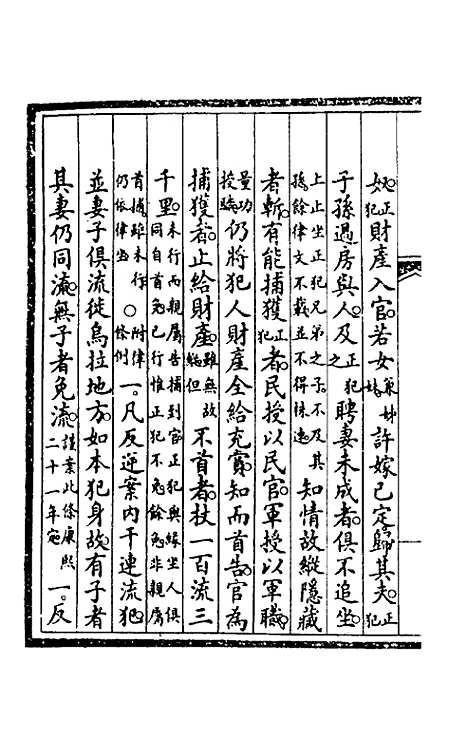 奴正犯財產入官若女兼姊妹許嫁已定歸其夫正犯
子孫過房與人及正犯之聘妻未成者俱不追坐
上止坐正犯兄弟之子不及其孫餘律文不載並不得株連知情故縱隱藏
者斬有能捕獲正犯者民授以民官軍授以軍職
量功授職仍將犯人財產全給充賞知而首告官為
捕獲者止給財產雖無故縱但不首者杖一百流三
千里未行而親屬告捕到官正犯與緣坐人俱同自首免已行惟正犯不免餘免非親屬
首捕雖未行仍依律坐○附律條例一凡反逆案內干連流犯
並妻子俱流徙烏拉地方如本犯身故有子者
其妻仍同遣無子者免流謹案此條康熙二十一年定一反